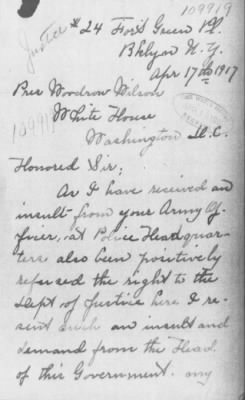 109919
Justice
# 24 Fort Green Pl.
Bklyn N.Y.
Apr 17th 1917
Pres Woodrow Wilson
White House
109919
Washington D.C.
Honored Sir;
As I have received an
insult from your Army Of-
ficer, at Police Headquar-
ters also been positively
refused the right to the
Dept of Justice here I re-
sent such an insult and
demand from the Head
of this Government. any